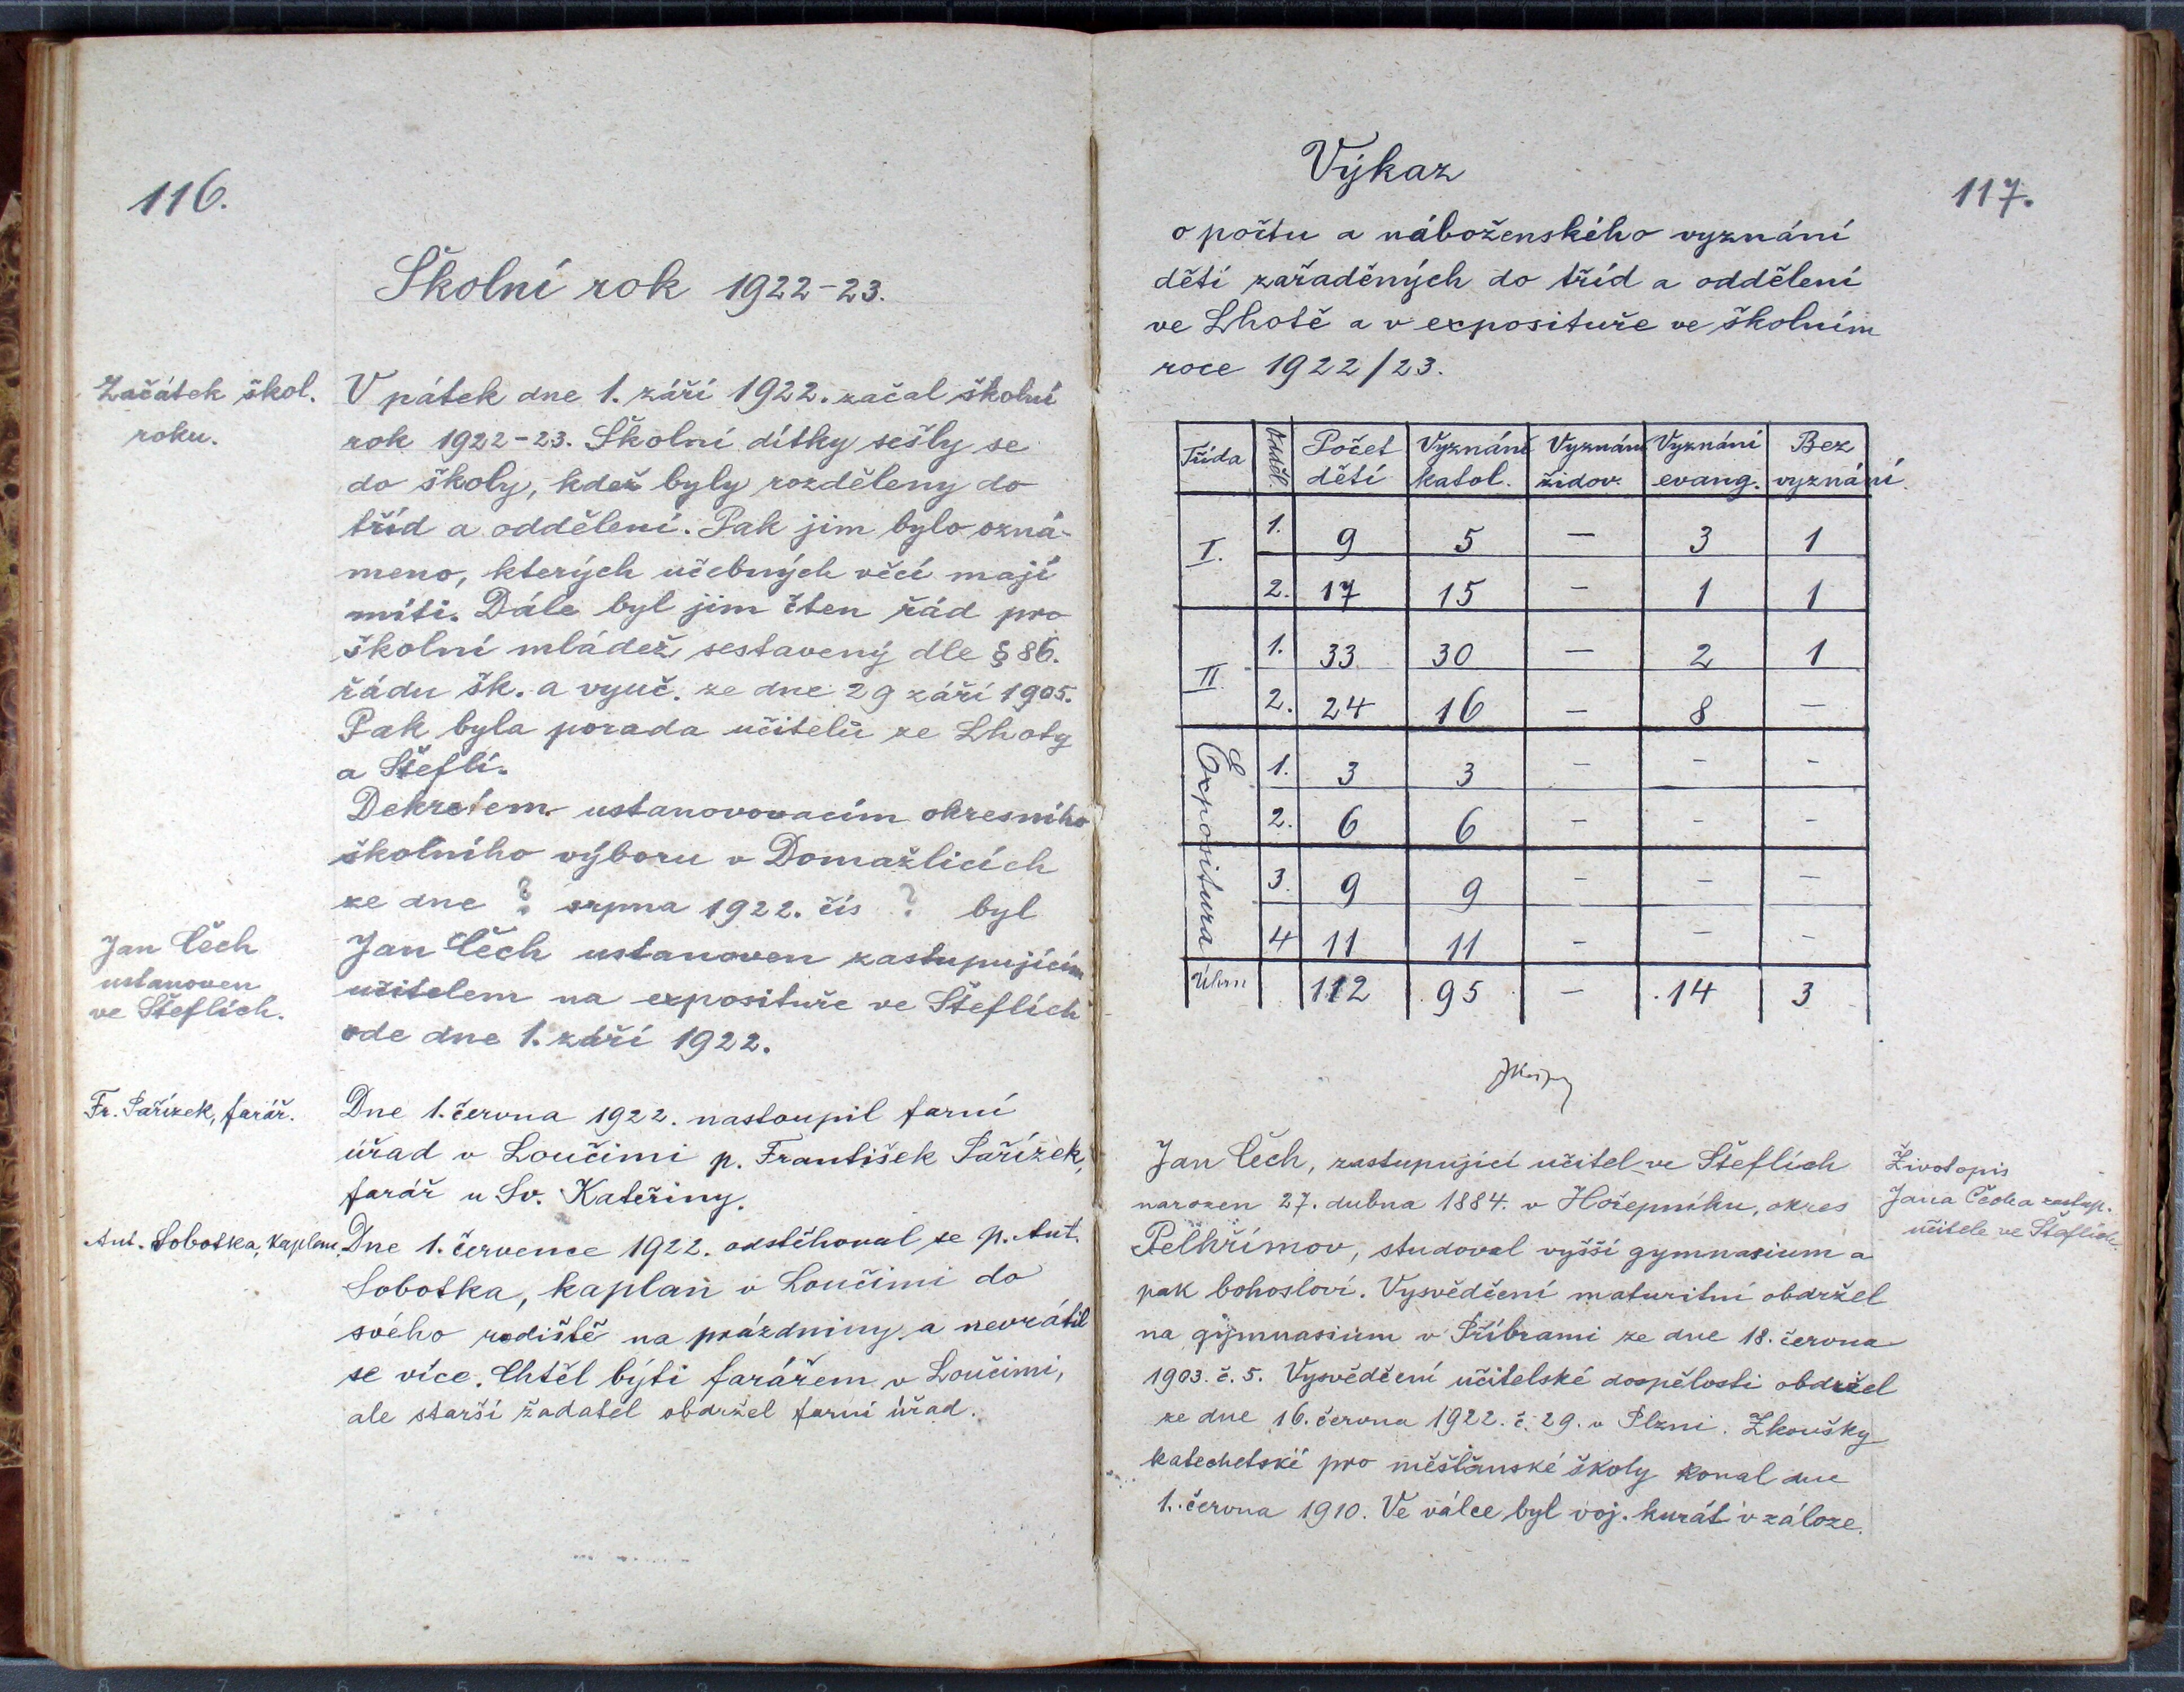 116.
Školní rok 1922-23.
Začátek škol.
roku.
V pátek dne 1. září 1922. začal školní
rok 1922-23. Školní dítky sešly se
do školy, kdež byly rozděleny do
tříd a oddělení. Pak jim bylo ozná-
meno, kterých učebných věcí mají
míti. Dále byl jim čten řád pro
školní mládež sestavený dle § 86.
řádu šk. a vyuč. ze dne 29 září 1905.
Pak byla porada učitelů ze Lhoty
a Šteflí.
Dekretem ustanovovacím okresního
školního výboru v Domažlicích
ze dne ? srpna 1922. čís ? byl
Jan Čech
ustanoven
ve Šteflích.
Jan Čech ustanoven zastupujícím
učitelem na exposituře ve Šteflích
ode dne 1. září 1922.
Fr. Pařízek, farář.
Dne 1. června 1922. nastoupil farní
úřad v Loučimi p. František Pařízek,
farář u Sv. Kateřiny.
Ant. Sobotka, kaplan.
Dne 1. července 1922. odstěhoval se p. Ant.
Sobotka, kaplan v Loučimi do
svého rodiště na prázdniny a nevrátil
se více. Chtěl býti farářem v Loučimi,
ale starší žadatel obdržel farní úřad.
117.
Výkaz
o počtu a náboženského vyznání
dětí zařaděných do tříd a oddělení
ve Lhotě a v exposituře ve školním
roce 1922/23.
Třída Odděl. Počet dětí Vyznání katol. Vyznání židov. Vyznání evang. Bez vyznání.
I. 1. 9 5 — 3 1
2. 17 15 — 1 1
II. 1. 33 30 — 2 1
2. 24 16 — 8 —
Expositura 1. 3 3 — — —
2. 6 6 — — —
3. 9 9 — — —
4 11 11 — — —
Úhrn 112 95 — 14 3
Jan Čech, zastupující učitel ve Šteflích
narozen 27. dubna 1884. v Hořepníku, okres
Pelhřimov, studoval vyšší gymnasium a
pak bohosloví. Vysvědčení maturitní obdržel
na gymnasium v Příbrami ze dne 18. června
1903. č. 5. Vysvědčení učitelské dospělosti obdržel
ze dne 16. června 1922. č. 29. v Plzni. Zkoušky
katechetské pro měšťanské školy konal dne
1. června 1910. Ve válce byl voj. kurát v záloze.
Životopis
Jana Čecha zastup.
učitele ve Šteflích.